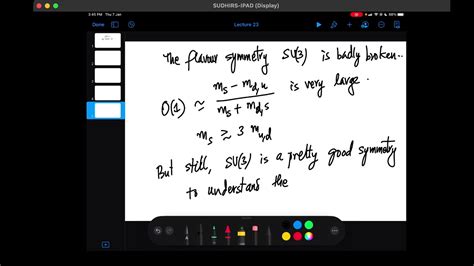 SUDHIRS-IPAD (Display)
3:45 PM Thu 7 Jan
Done
Lecture 23
The flavour symmetry SU(3) is badly broken..
O(1) ≃ (m_s − m_d,u) / (m_s + m_d,s) is very large.
m_s ≳ 3 m_u,d
But still, SU(3) is a pretty good symmetry
to understand the